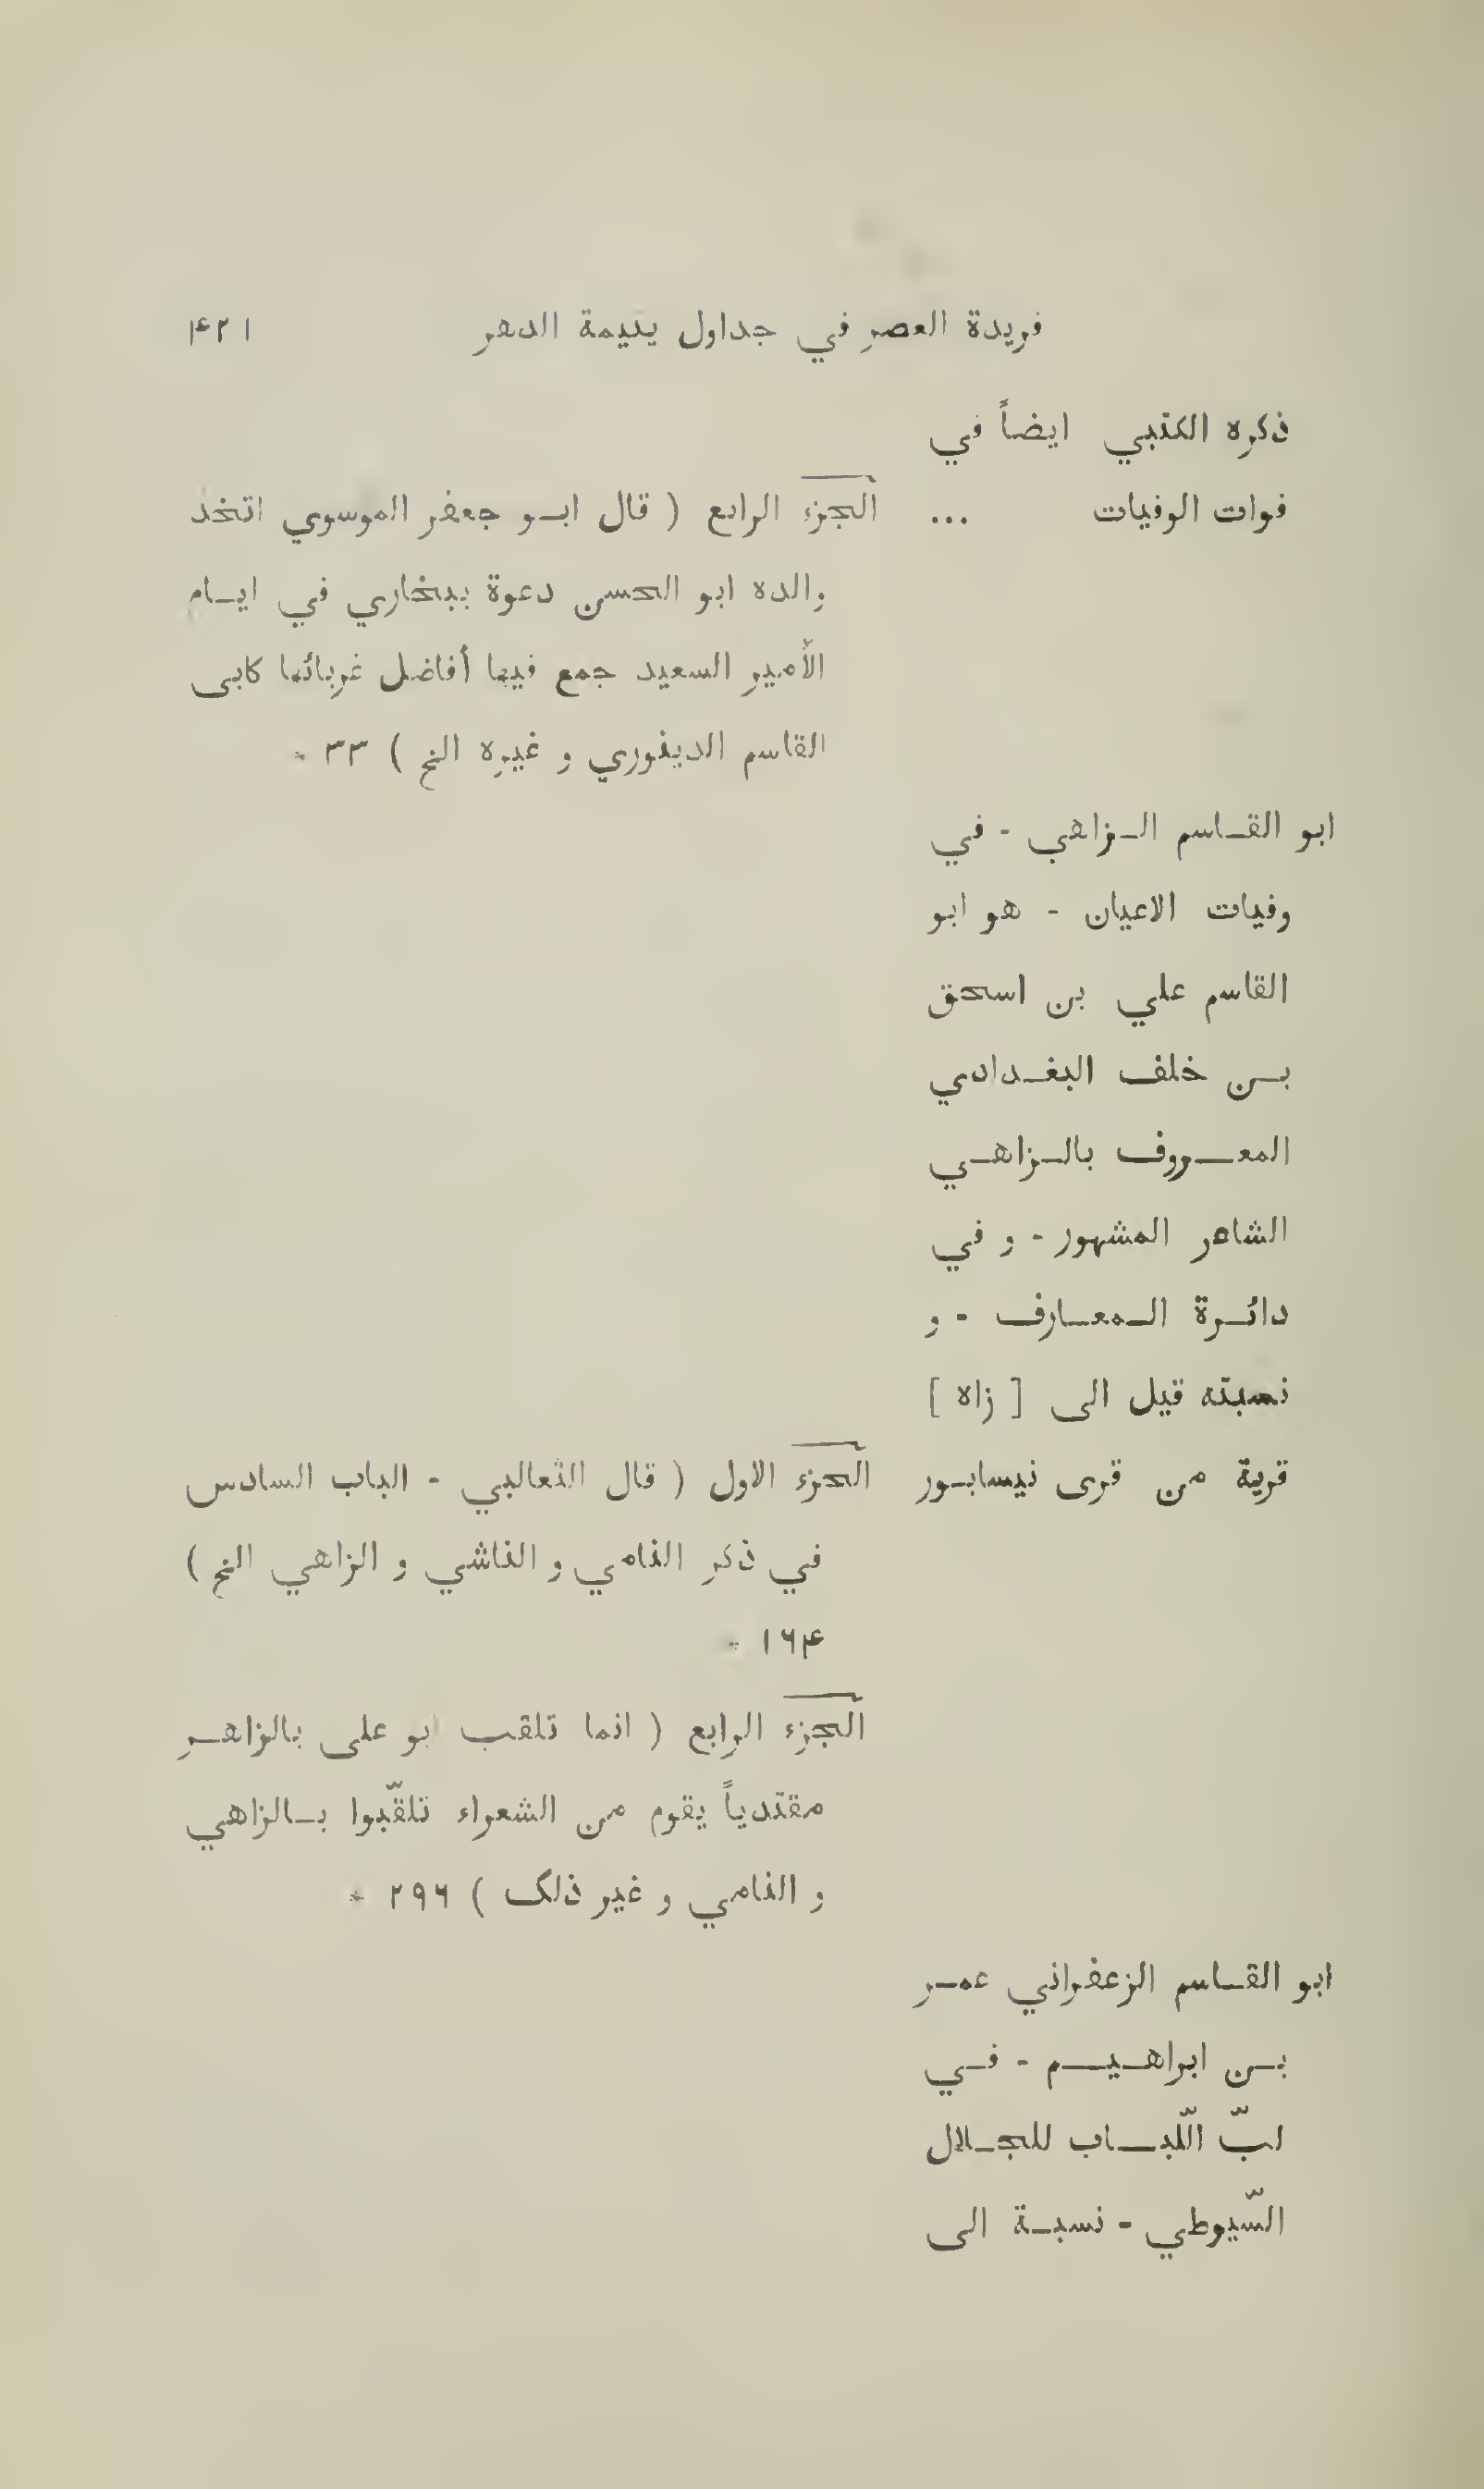 فريدة العصر في جداول يتيمة الدهر ۴۲۱
ذكره الكتبي ايضاً في
فوات الوفيات ... الجزء الرابع ( قال ابو جعفر الموسوي اتخذ
والده ابو الحسن دعوة ببخاري في ايام
الأمير السعيد جمع فيها أفاضل غربائها كابى
القاسم الدينوري و غيره الخ ) ۳۳ *
ابو القاسم الزاهي - في
وفيات الاعيان - هو ابو
القاسم علي بن اسحق
بن خلف البغدادي
المعروف بالزاهي
الشاعر المشهور - و في
دائرة المعارف - و
نسبته قيل الى [ زاه ]
قرية من قرى نيسابور الجزء الاول ( قال الثعالبي - الباب السادس
في ذكر النامي و الناشي و الزاهي الخ )
۱۶۴ *
الجزء الرابع ( انما تلقب ابو على بالزاهر
مقتدياً يقوم من الشعراء تلقّبوا بالزاهي
و النامي و غير ذلك ) ۲۹۶ *
ابو القاسم الزعفراني عمر
بن ابراهيم - في
لبّ اللّباب للجلال
السّيوطي - نسبة الى